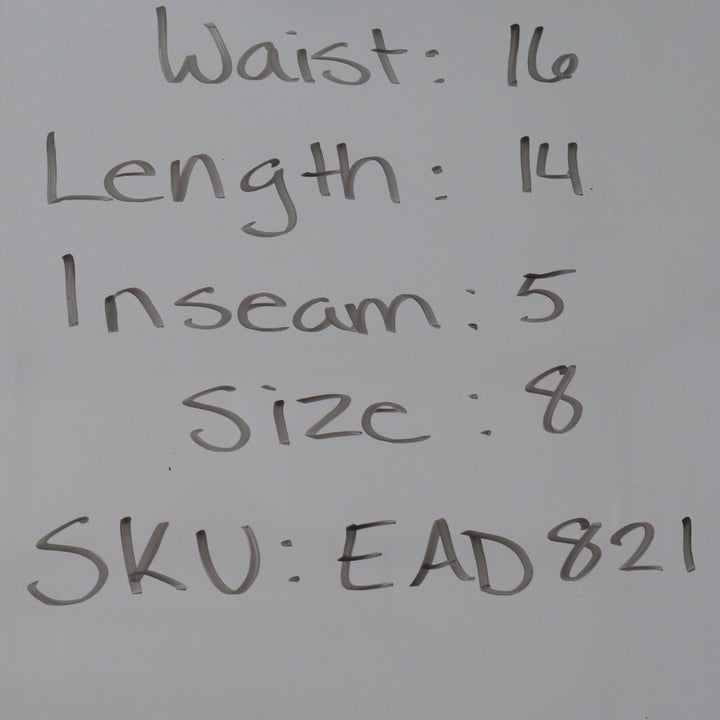 Waist: 16
Length: 14
Inseam: 5
Size: 8
SKU: EAD821